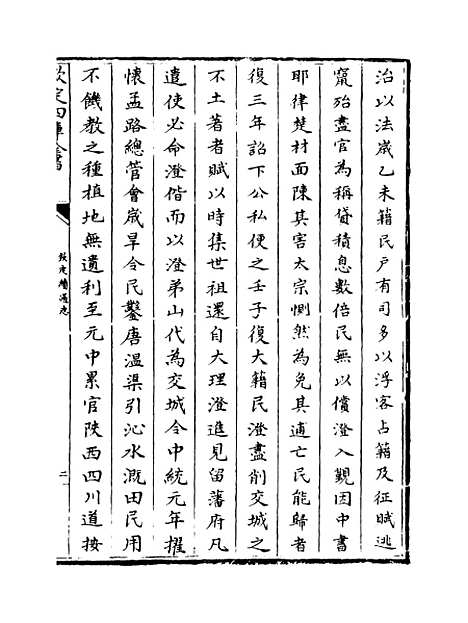 治以法歲乙未籍民戸有司多以浮客占籍及征賦逃
竄殆盡官為稱貸積息數倍民無以償澄入覲因中書
耶律楚材面陳其害太宗惻然為免其逋亡民能歸者
復三年詔下公私便之壬子復大籍民澄盡削交城之
不土著者賦以時集世祖還自大理澄進見留藩府凡
遣使必命澄偕而以澄弟山代為交城令中統元年擢
懷孟路總管會歲旱令民鑿唐温渠引沁水溉田民用
不饑教之種植地無遺利至元中累官陜西四川道按
欽定四庫全書
欽定續通志
二